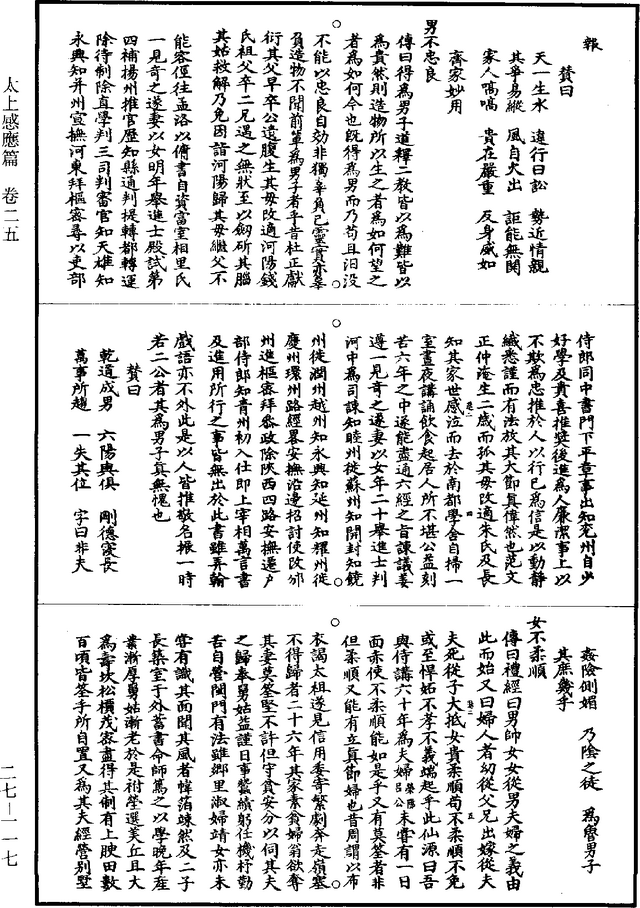 報
贊曰
天一生水　違行曰訟　勢近情親
其爭易縱　風自火出　詎能無閑
家人嗃嗃　貴在嚴重　反身威如
齊家妙用
男不忠良
傳曰得爲男子道釋二教皆以爲難皆以
爲貴然則造物所以生之者爲如何望之
者爲如何今也旣得爲男而乃苟且汨没
不能以忠良自効非獨辜負己靈實亦辜
負造物不聞前輩爲男子者乎昔杜正獻
衍其父早卒公遺腹生其母改適河陽錢
氏祖父卒二兄遇之無狀至以劒斫其腦
其姑救解乃免因詣河陽歸其母繼父不
能容徑往孟洛以傭書自資富室相里氏
一見奇之遂妻以女明年舉進士殿試第
四補楊州推官歷知縣通判提轉都轉運
除待制除直學判三司判審官知天雄知
永興知并州宣撫河東拜樞密尋以吏部
侍郎同中書門下平章事出知兖州自少
好學及貴喜推奬後進爲人廉潔事上以
不欺爲忠推於人以行已爲信是以動靜
纖悉謹而有法放其大節眞偉然也范文
正仲淹生二歲而孤其母改適朱氏及長
知其家世感泣而去於南都學舍自掃一
室晝夜講誦飲食起居人所不堪公益刻
苦六年之中遂能盡通六經之旨諫議姜
遵一見奇之遂妻以女年二十舉進士判
河中爲司諫知睦州徙蘇州知開封知饒
州徙潤州越州知永興知延州知耀州徙
慶州環州路經畧安撫沿邊招討使改邠
州進樞密拜叅政除陝西四路安撫遷戸
部侍郎知青州初入仕即上宰相萬言書
及進用所行之事皆無出於此書雖弄翰
戲語亦不外此是以人皆推敬名振一時
若二公者其爲男子眞無愧也
贊曰
乾道成男　六陽與俱　剛德寔長
萬事所趨　一失其位　字曰非夫
姦險側媚　乃陰之徒　爲魯男子
其庶幾乎
女不柔順
傳曰禮經曰男帥女女從男夫婦之義由
此而始又曰婦人者幼從父兄出嫁從夫
夫死從子大抵女貴柔順苟不柔順不免
或至悍妬不孝不義端起乎此仙源曰吾
與侍講六十年爲夫婦滎陽呂公未嘗有一日
面赤使不柔順能如是乎又有莫荃者非
但柔順又能有立眞節婦也昔周謂以布
衣謁太祖遂見信用委寄繁劇奔走嶺塞
不得歸者二十六年其家素貧婦翁欲奪
其妻莫荃堅不許但守貧安分以伺其夫
之歸奉舅姑益謹日事蠶績躬任機杼勤
苦自營閨門有法雖鄉里淑婦靖女亦未
甞有識其面聞其風者幃箔竦然及二子
長築室于外蓄書命師篤之以學晚年產
業漸厚舅姑漸老於是祔塋選美丘且大
爲壽坎松檟茂密盡得其制有上腴田數
百頃皆荃手所自置又爲其夫經營别墅
太上感應篇　卷二五
二七—一一七